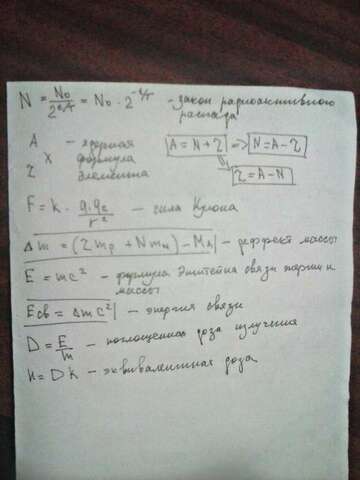 N = N₀/2^(t/T) = N₀ · 2^(-t/T) - закон радиоактивного распада
A - ядерная
X формула
Z элемента
A = N + Z => N = A - Z
Z = A - N
F = k · q₁q₂/r² - сила Кулона
Δm = (Z mp + N mn) - Mя - деффект массы
E = mc² - формула Энштейна связи энергии и массы
Eсв = Δmc² - энергия связи
D = E/m - поглощенная доза излучения
H = D k - эквивалентная доза